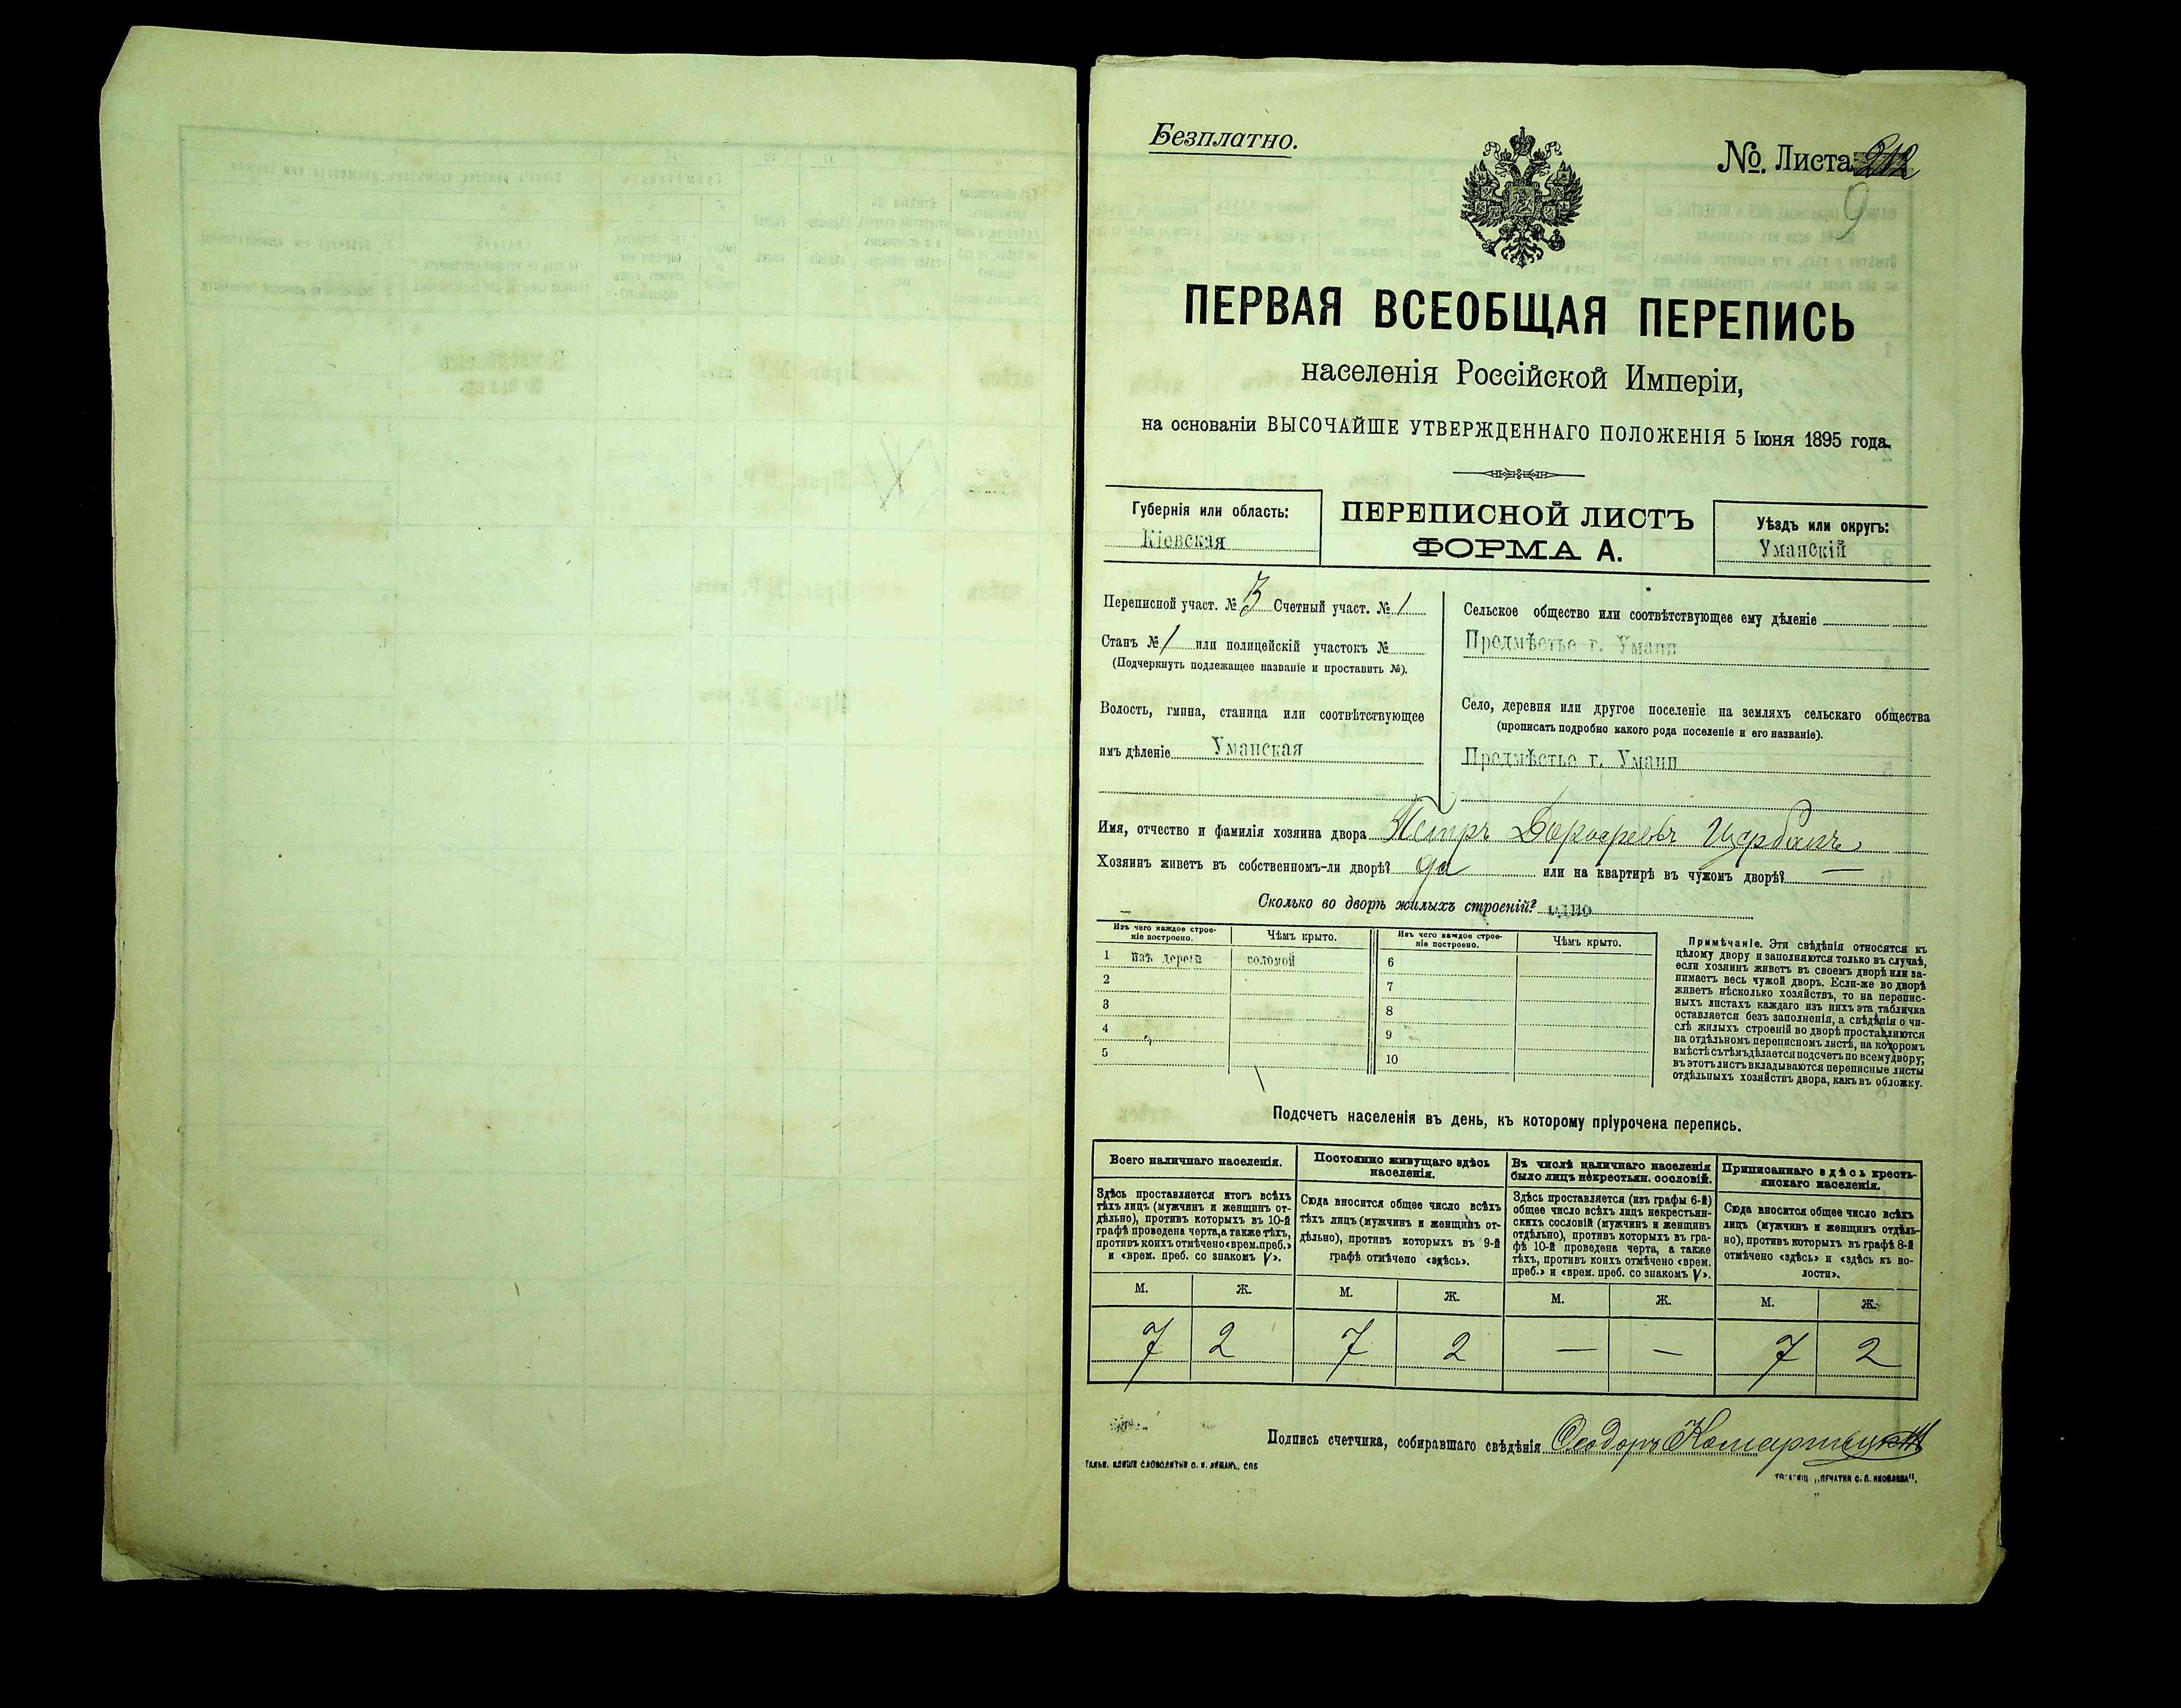 Безплатно.
№. Листа 212
9
ПЕРВАЯ ВСЕОБЩАЯ ПЕРЕПИСЬ
населенія Россійской Имперіи,
на основаніи ВЫСОЧАЙШЕ УТВЕРЖДЕННАГО ПОЛОЖЕНІЯ 5 Іюня 1895 года.
Губернія или область:
Кіевская
ПЕРЕПИСНОЙ ЛИСТЪ
ФОРМА А.
Уѣздъ или округъ:
Уманскій
Переписной участ. № 3 Счетный участ. № 1
Станъ № 1 или полицейскій участокъ №
(Подчеркнуть подлежащее названіе и проставить №).
Волость, гмина, станица или соотвѣтствующее
имъ дѣленіе Уманская
Сельское общество или соотвѣтствующее ему дѣленіе
Предмѣстье г. Умани
Село, деревня или другое поселеніе на земляхъ сельскаго общества
(прописать подробно какого рода поселеніе и его названіе).
Предмѣстье г. Умани
Имя, отчество и фамилія хозяина двора Петръ
Хозяинъ живетъ въ собственномъ-ли дворѣ? да или на квартирѣ въ чужомъ дворѣ? —
Сколько во дворѣ жилыхъ строеній? одно
Изъ чего каждое строе-
ніе построено.
Чѣмъ крыто.
Изъ чего каждое строе-
ніе построено.
Чѣмъ крыто.
1 изъ дерева соломой 6
2 7
3 8
4 9
5 10
Примѣчаніе. Эти свѣдѣнія относятся къ
цѣлому двору и заполняются только въ случаѣ,
если хозяинъ живетъ въ своемъ дворѣ или за-
нимаетъ весь чужой дворъ. Если-же во дворѣ
живетъ нѣсколько хозяйствъ, то на перепис-
ныхъ листахъ каждаго изъ нихъ эта табличка
оставляется безъ заполненія, а свѣдѣнія о чи-
слѣ жилыхъ строеній во дворѣ проставляются
на отдѣльномъ переписномъ листѣ, на которомъ
вмѣстѣ съ тѣмъ дѣлается подсчетъ по всему двору;
въ этотъ листъ вкладываются переписные листы
отдѣльныхъ хозяйствъ двора, какъ въ обложку.
Подсчетъ населенія въ день, къ которому пріурочена перепись.
Всего наличнаго населенія.
Здѣсь проставляется итогъ всѣхъ
тѣхъ лицъ (мужчинъ и женщинъ от-
дѣльно), противъ которыхъ въ 10-й
графѣ проведена черта, а также тѣхъ,
противъ коихъ отмѣчено «врем. преб.»
и «врем. преб. со знакомъ V».
Постоянно живущаго здѣсь
населенія.
Сюда вносится общее число всѣхъ
тѣхъ лицъ (мужчинъ и женщинъ от-
дѣльно), противъ которыхъ въ 9-й
графѣ отмѣчено «здѣсь».
Въ числѣ наличнаго населенія
было лицъ некрестьян. сословій.
Здѣсь проставляется (изъ графы 6-й)
общее число всѣхъ лицъ некрестьян-
скихъ сословій (мужчинъ и женщинъ
отдѣльно), противъ которыхъ въ гра-
фѣ 10-й проведена черта, а также
тѣхъ, противъ коихъ отмѣчено «врем.
преб.» и «врем. преб. со знакомъ V».
Приписаннаго здѣсь кресть-
янскаго населенія.
Сюда вносится общее число всѣхъ
лицъ (мужчинъ и женщинъ отдѣль-
но), противъ которыхъ въ графѣ 8-й
отмѣчено «здѣсь» и «здѣсь къ во-
лости».
М. Ж. М. Ж. М. Ж. М. Ж.
7 2 7 2 — — 7 2
Подпись счетчика, собиравшаго свѣдѣнія Ѳеодоръ